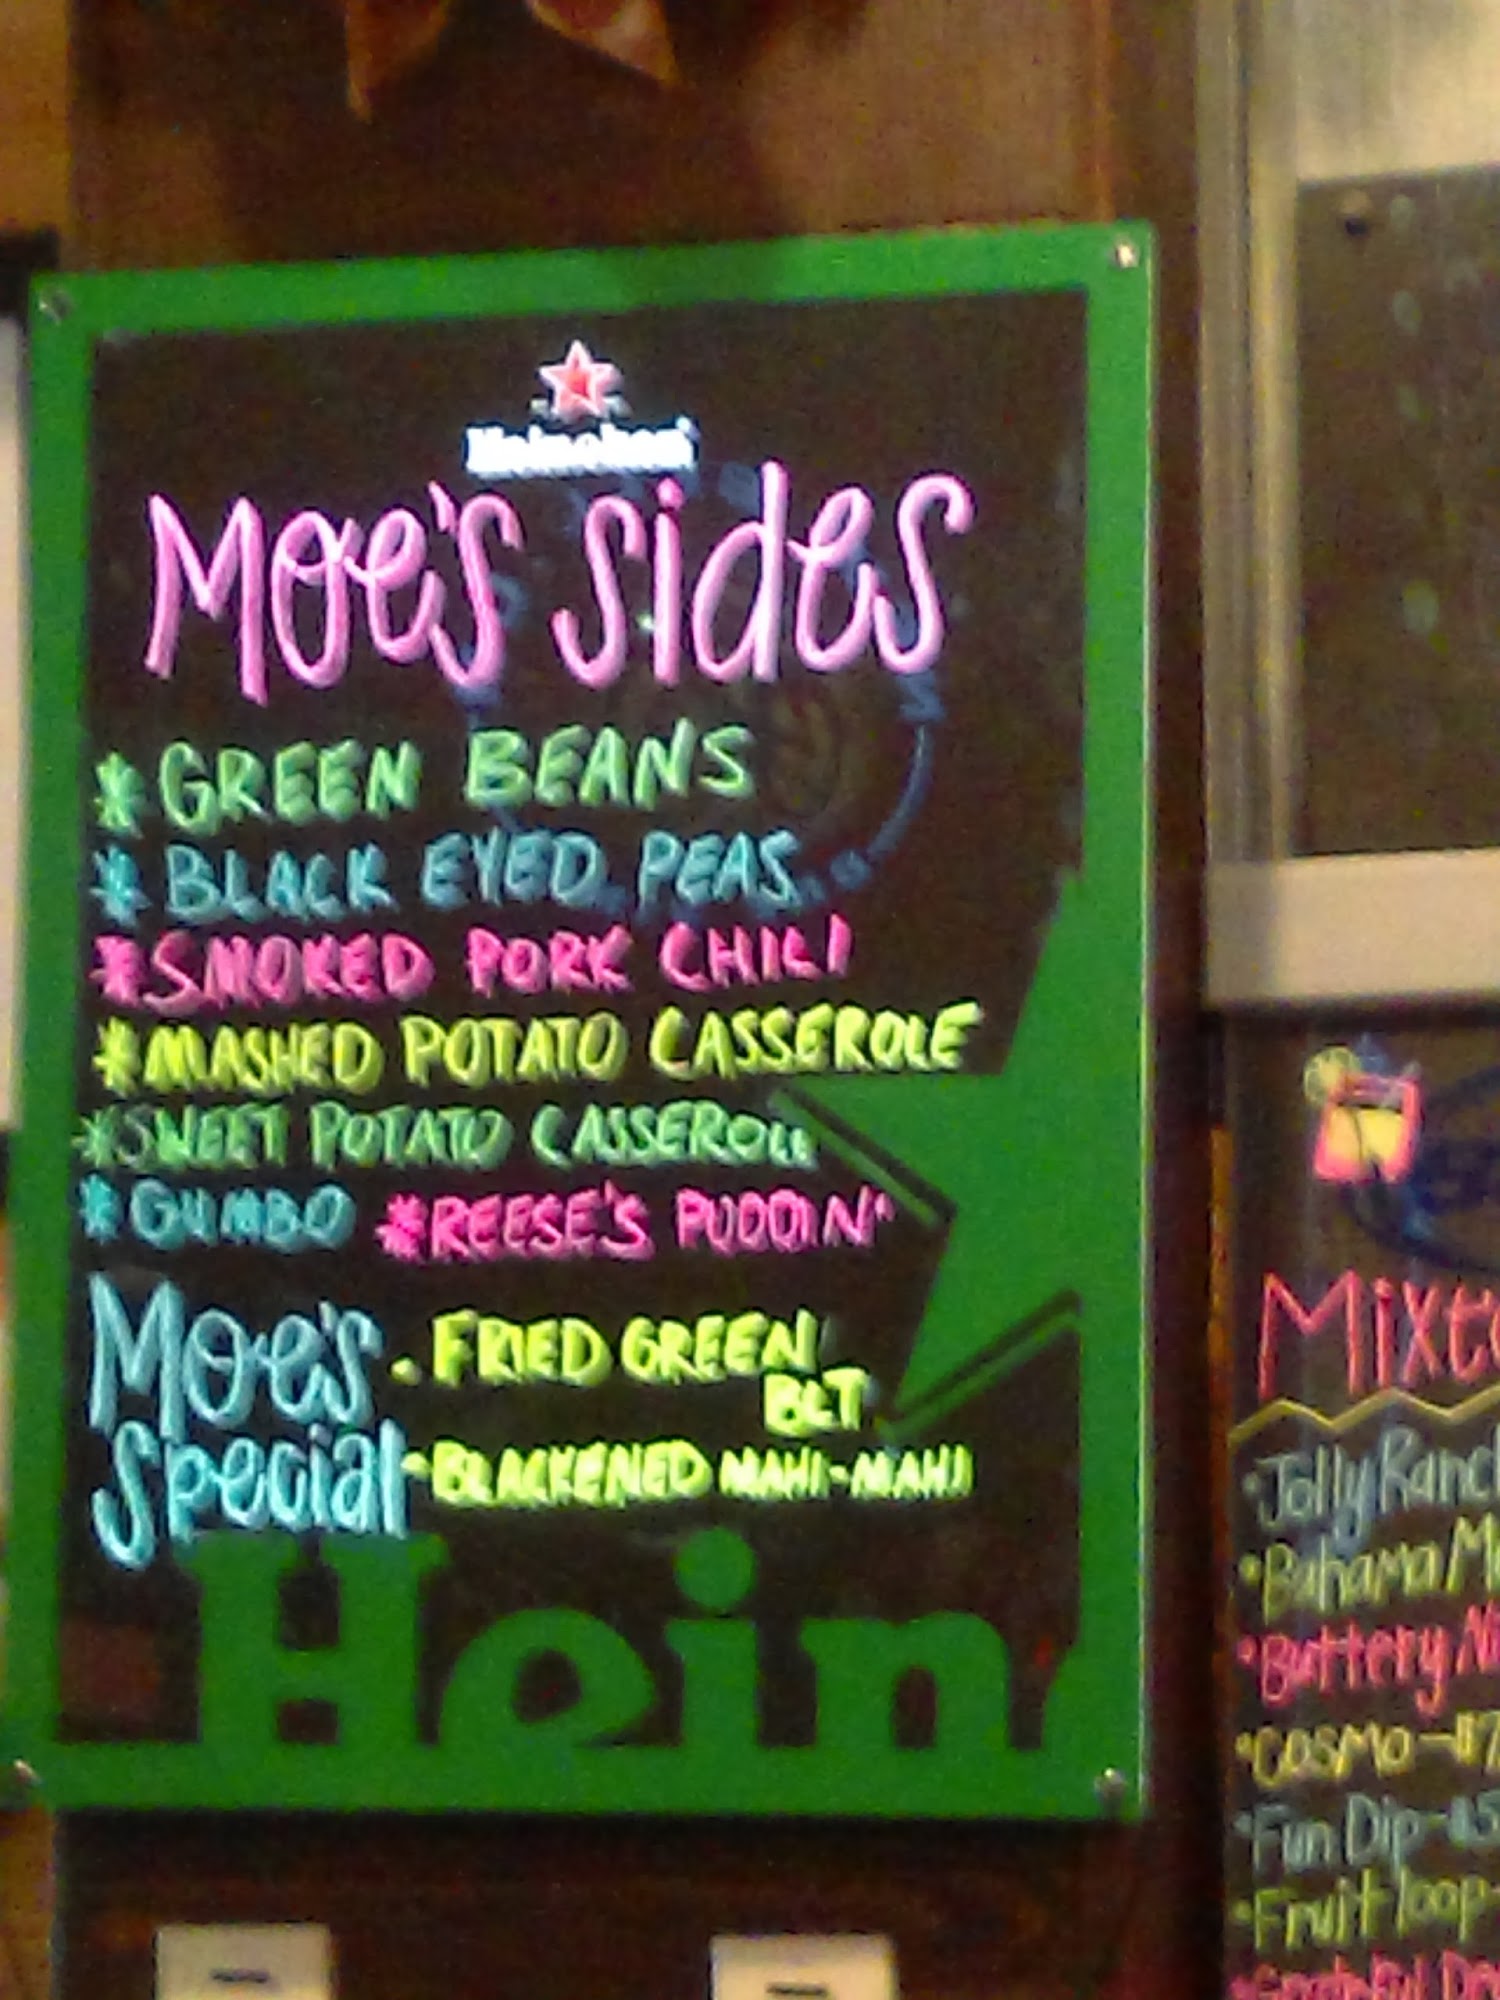 Heineken
Moe's sides
* GREEN BEANS
* BLACK EYED PEAS
* SMOKED PORK CHILI
* MASHED POTATO CASSEROLE
* SWEET POTATO CASSEROLE
* GUMBO * REESE'S PUDDIN'
Moe's Special
• FRIED GREEN
BLT
• BLACKENED MAHI-MAHI
Hein
Mixe
• Jolly Ranch
• Bahama M
• Buttery Ni
• Cosmo-
• Fun Dip-
• Fruit loop-